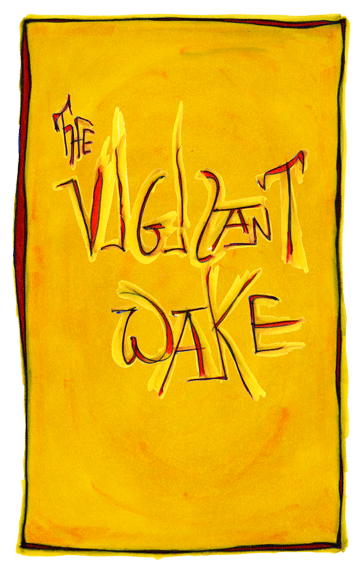 THE
VIGILANT
WAKE